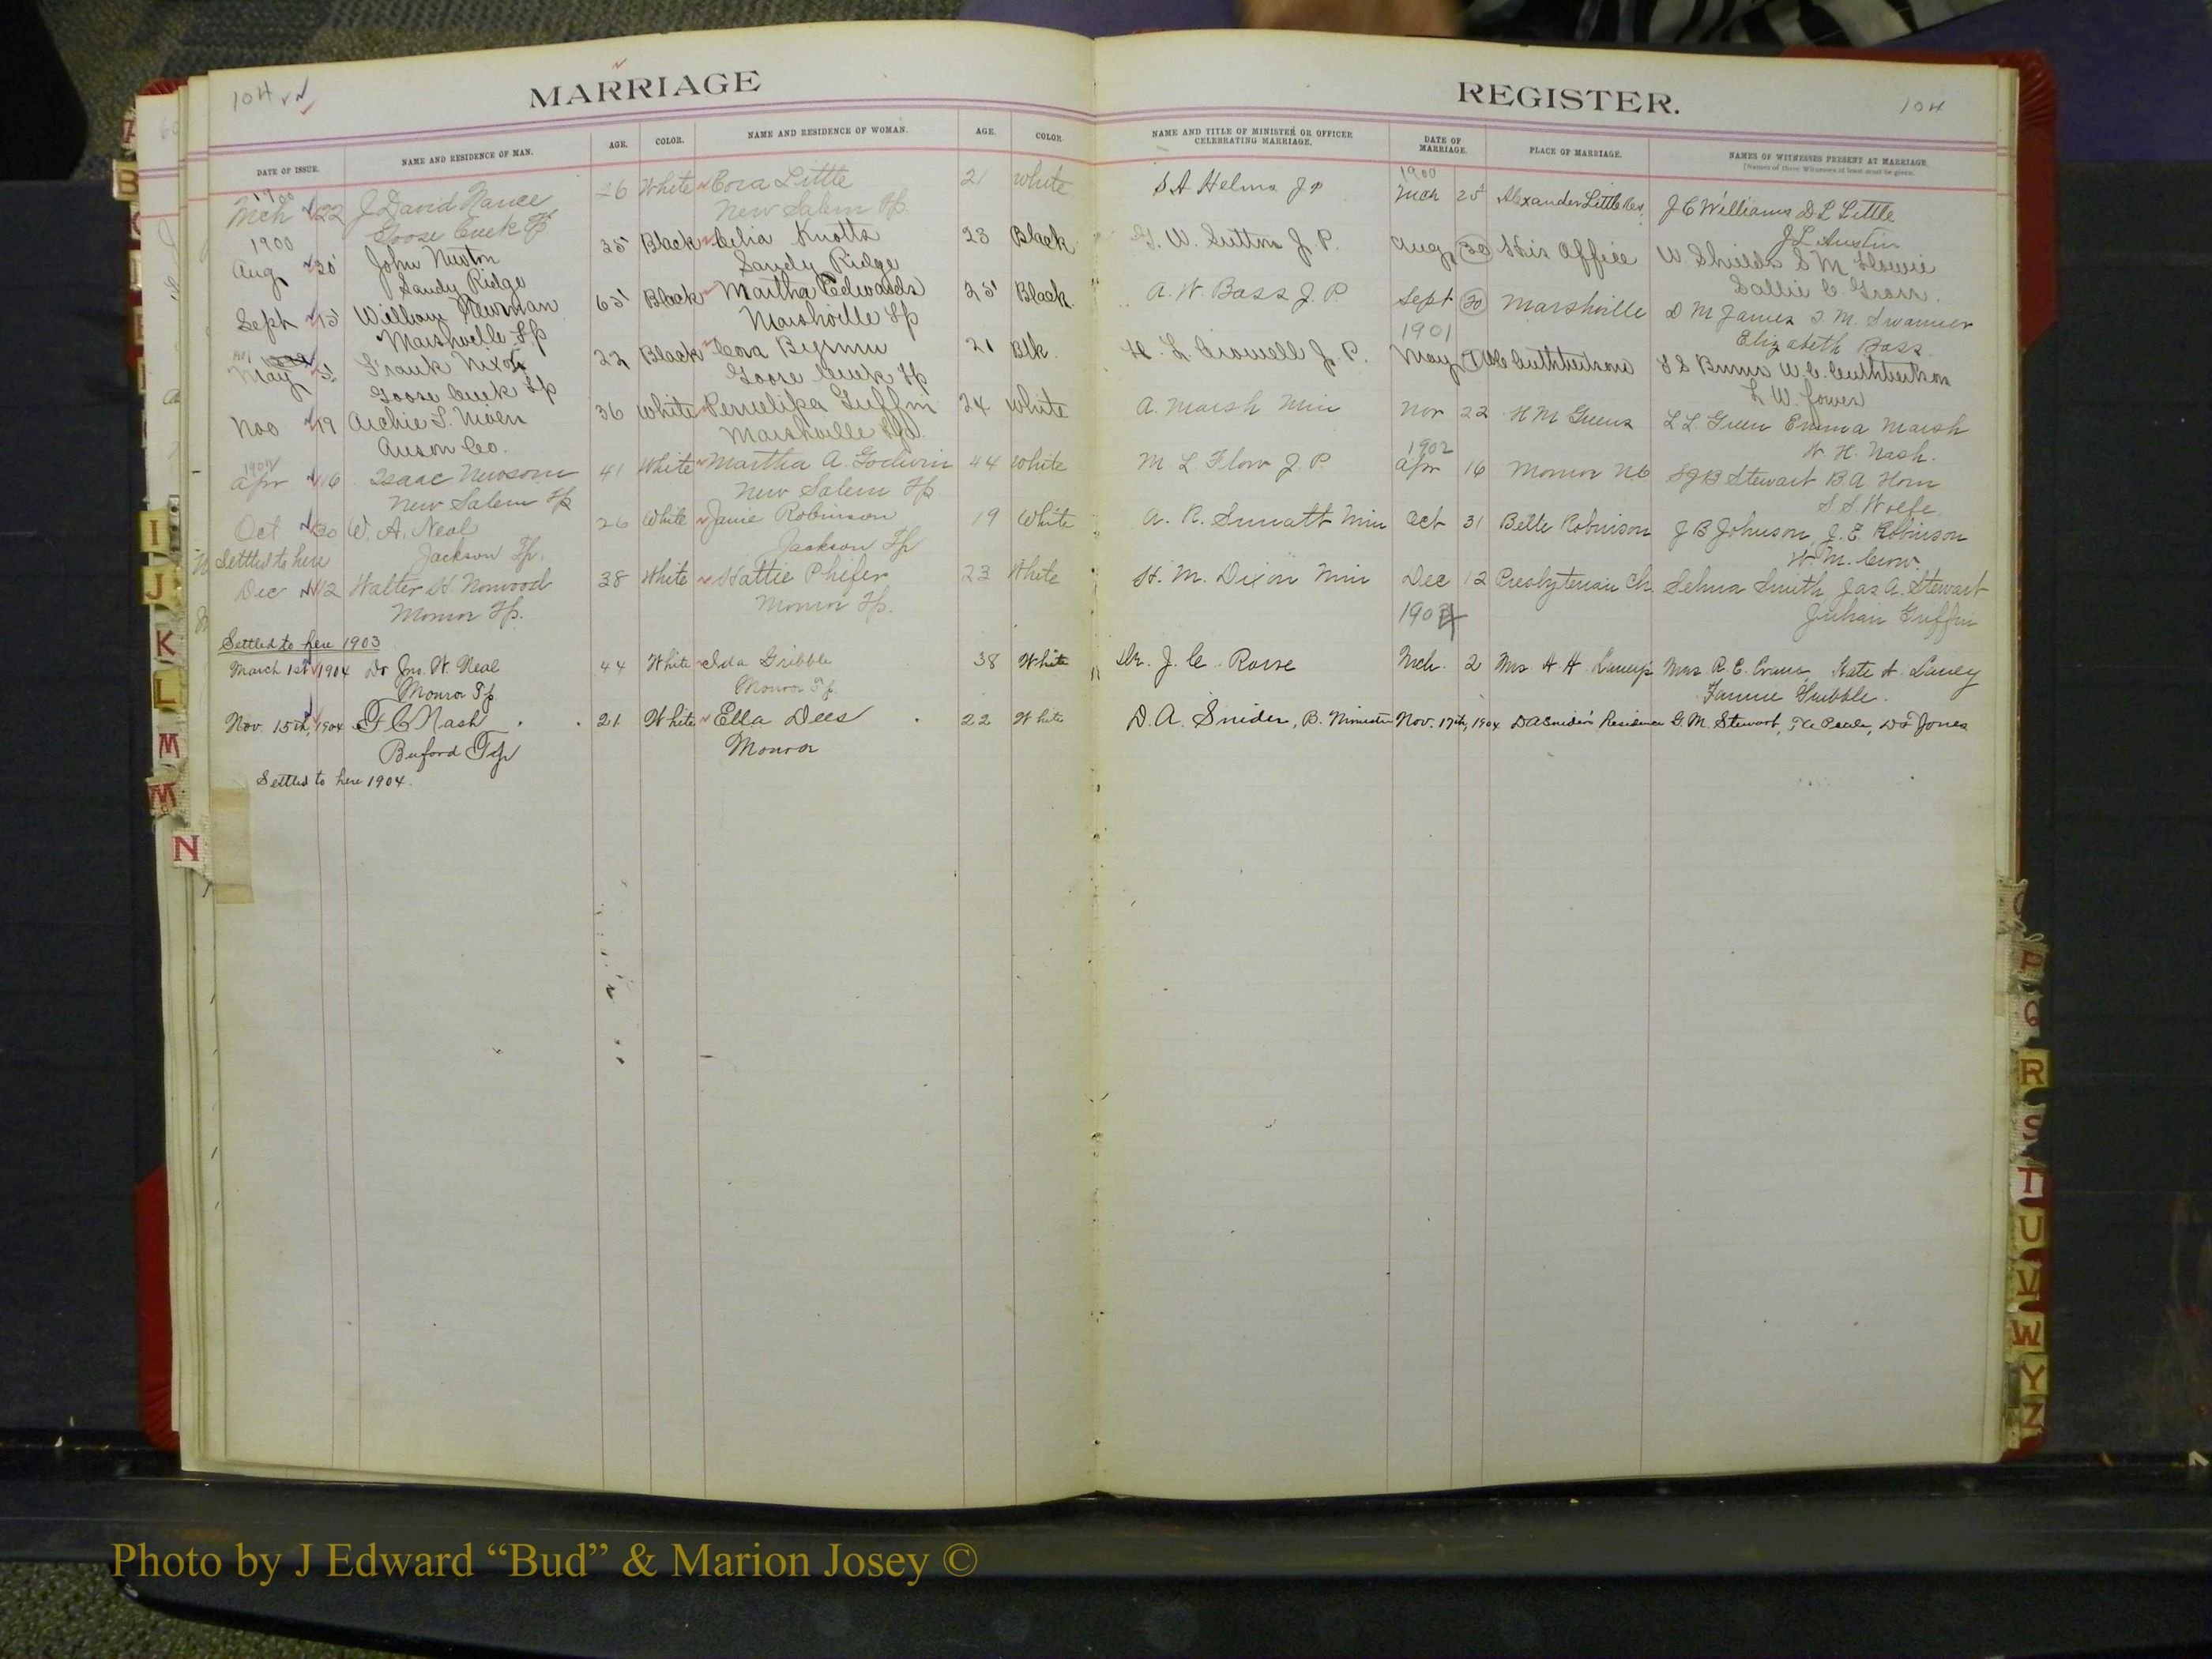 104
MARRIAGE
REGISTER.
104
DATE OF ISSUE. NAME AND RESIDENCE OF MAN. AGE. COLOR. NAME AND RESIDENCE OF WOMAN. AGE. COLOR. NAME AND TITLE OF MINISTER OR OFFICER CELEBRATING MARRIAGE. DATE OF MARRIAGE. PLACE OF MARRIAGE. NAMES OF WITNESSES PRESENT AT MARRIAGE.
[Names of three Witnesses at least must be given.
1900 1900
Mch 22 J David Nance 26 White Cora Little 21 White S A Helms J P Mch 25 Alexander Little Res. J C Williams D L Little
Goose Creek Tp. New Salem Tp. J L Austin
1900
Aug 30 John Newton 35 Black Celia Knotts 23 Black G. W. Sutton J. P. Aug 30 His Office W. Shields S M Howie
Sandy Ridge Sandy Ridge Sallie C.
Sept 15 William Newman 65 Black Martha Edwards 25 Black A. W. Bass J. P. Sept 30 Marshville D M James
Marshville Tp Marshville Tp 1901 Elizabeth Bass
May Frank Nixon 22 Black Cora 21 Blk. H. L. Crowell J. P. May Cuthbertsons W. C. Cuthbertson
Goose Creek Tp Goose Creek Tp L. W.
Nov 19 Archie T. Niven 36 White Griffin 24 White A. Marsh Min Nov 22 H M Greens L L Green Emma Marsh
Anson Co. Marshville W. H. Nash.
1902 1902
Apr 16 Isaac Newsom 41 White Martha A. Godwin 44 White M L Flow J. P. Apr 16 Monroe N C Stewart B. A. Horn
New Salem Tp New Salem Tp S S Wolfe
Oct 30 W. A. Neal 26 White Janie Robinson 19 White A. R. Surratt Min Oct 31 Belle Robinson J B Johnson, J. E. Robinson
Settled to here Jackson Tp. Jackson Tp W. M. Crow.
Dec 12 Walter H. Norwood 38 White Hattie Phifer 23 White H. M. Dixon Min Dec 12 Presbyterian Ch Selma Smith Jas A. Stewart
Monroe Tp. Monroe Tp. 1904 Julian Griffin
Settled to here 1903
March 1st 1904 Dr Jno. W. Neal 44 White Ida Gribble 38 White Dr. J. C. Rowe Mch. 2 Mrs. H H Laney's Mrs R. E. Evans, Kate A. Laney
Monroe Tp. Monroe Tp. Fannie Gribble.
Nov. 15th, 1904 F. C Nash 21 White Ella Dees 22 White D. A. Snider, B. Minister Nov. 17th, 1904 D A Snider's Residence G. M. Stewart, Jones
Buford Tp Monroe
Settled to here 1904.
I
J
K
L
M
M
N
P
Q
R
S
T
U
V
W
Y
Z
Photo by J Edward “Bud” & Marion Josey ©